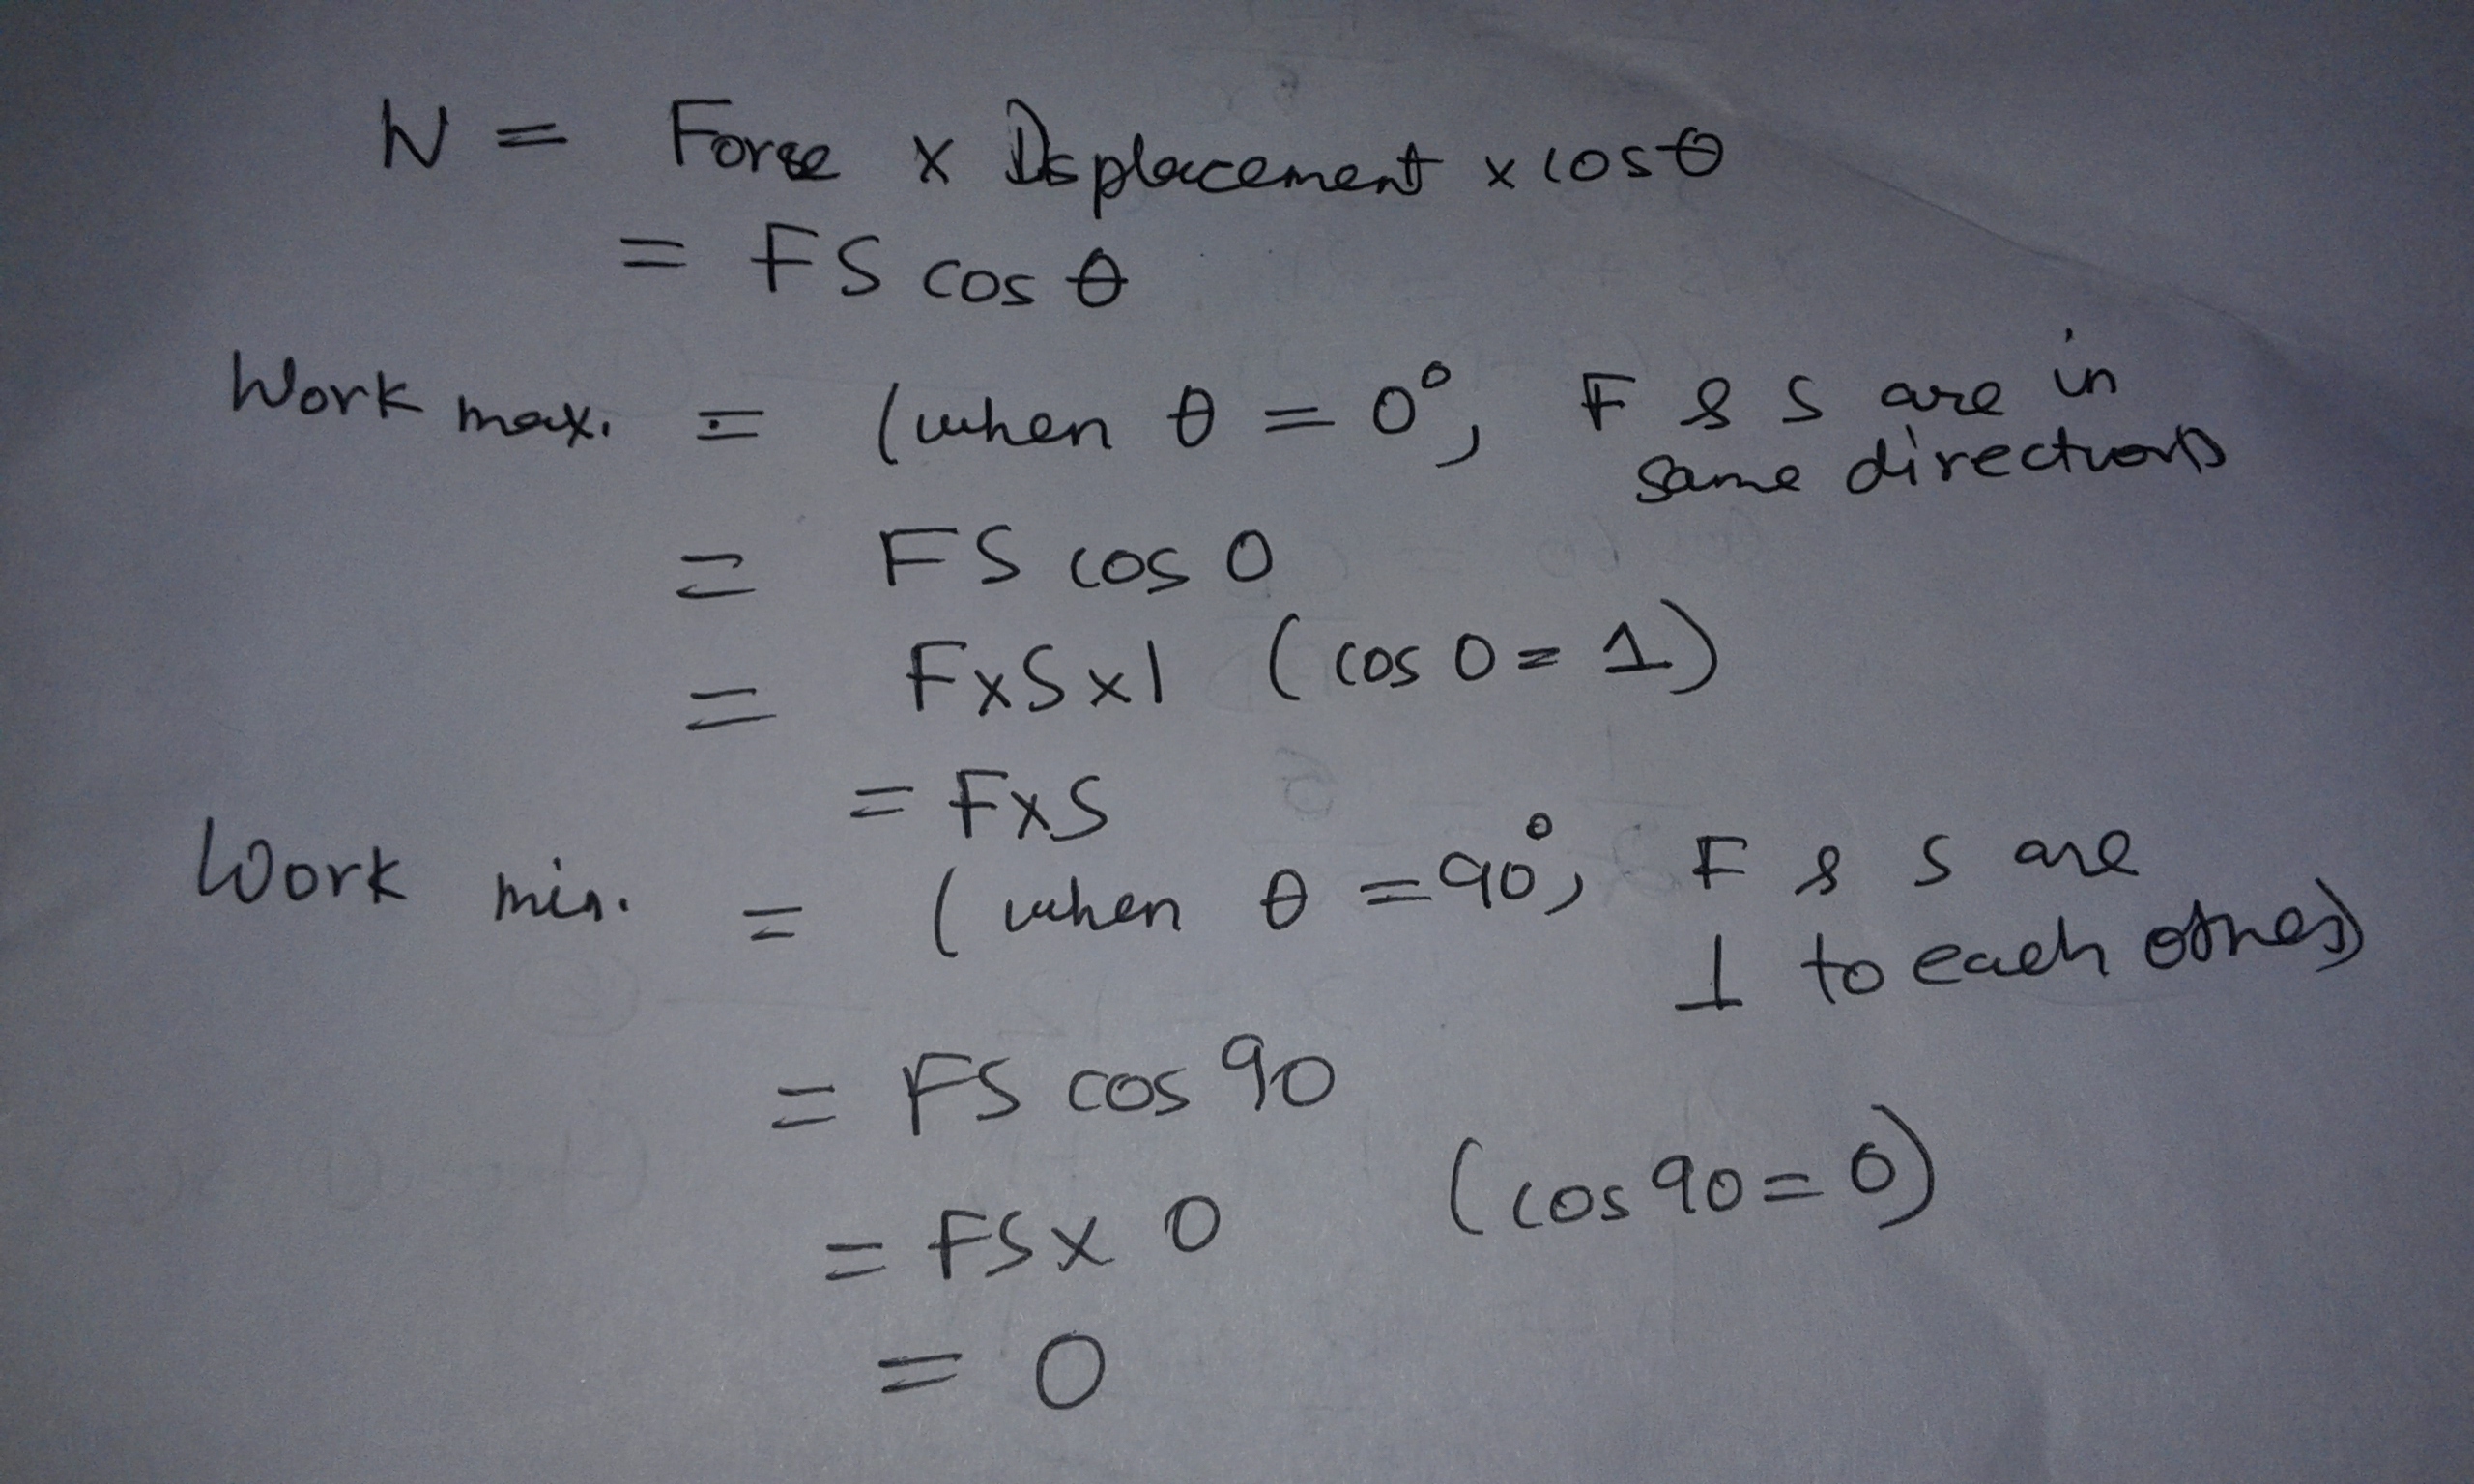 W = Force x Displacement x cos θ
= FS cos θ
Work max. = (when θ = 0°, F & S are in
same direction)
= FS cos 0
= FxSx1 (cos 0 = 1)
= FxS
Work min. = (when θ = 90°, F & S are
⊥ to each other)
= FS cos 90
= FS x 0 (cos 90 = 0)
= 0